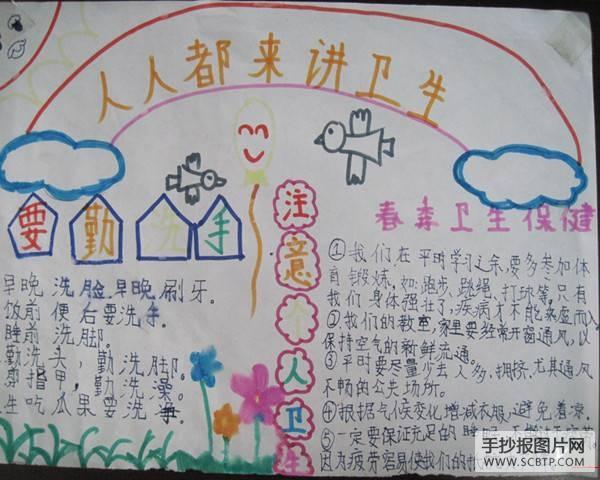 人人都来讲卫生
要勤洗手
早晚洗脸早晚刷牙。
饭前便后要洗手。
睡前洗脚。
勤洗头,勤洗脚。
剪指甲,勤洗澡。
生吃瓜果要洗净。
注意个人卫生
春季卫生保健
①我们在平时学习之余,要多参加体
育锻炼,如:跑步、跳绳、打球等,只有
我们身体强壮了,疾病才不能乘虚而入
②我们的教室,家里要经常开窗通风,以
保持空气的新鲜流通。
③平时要尽量少去人多、拥挤、尤其通风
不畅的公共场所。
④根据气候变化增减衣服,避免着凉。
⑤一定要保证充足的睡眠
因为疲劳容易使我们的
手抄报图片网
WWW.SCBTP.COM